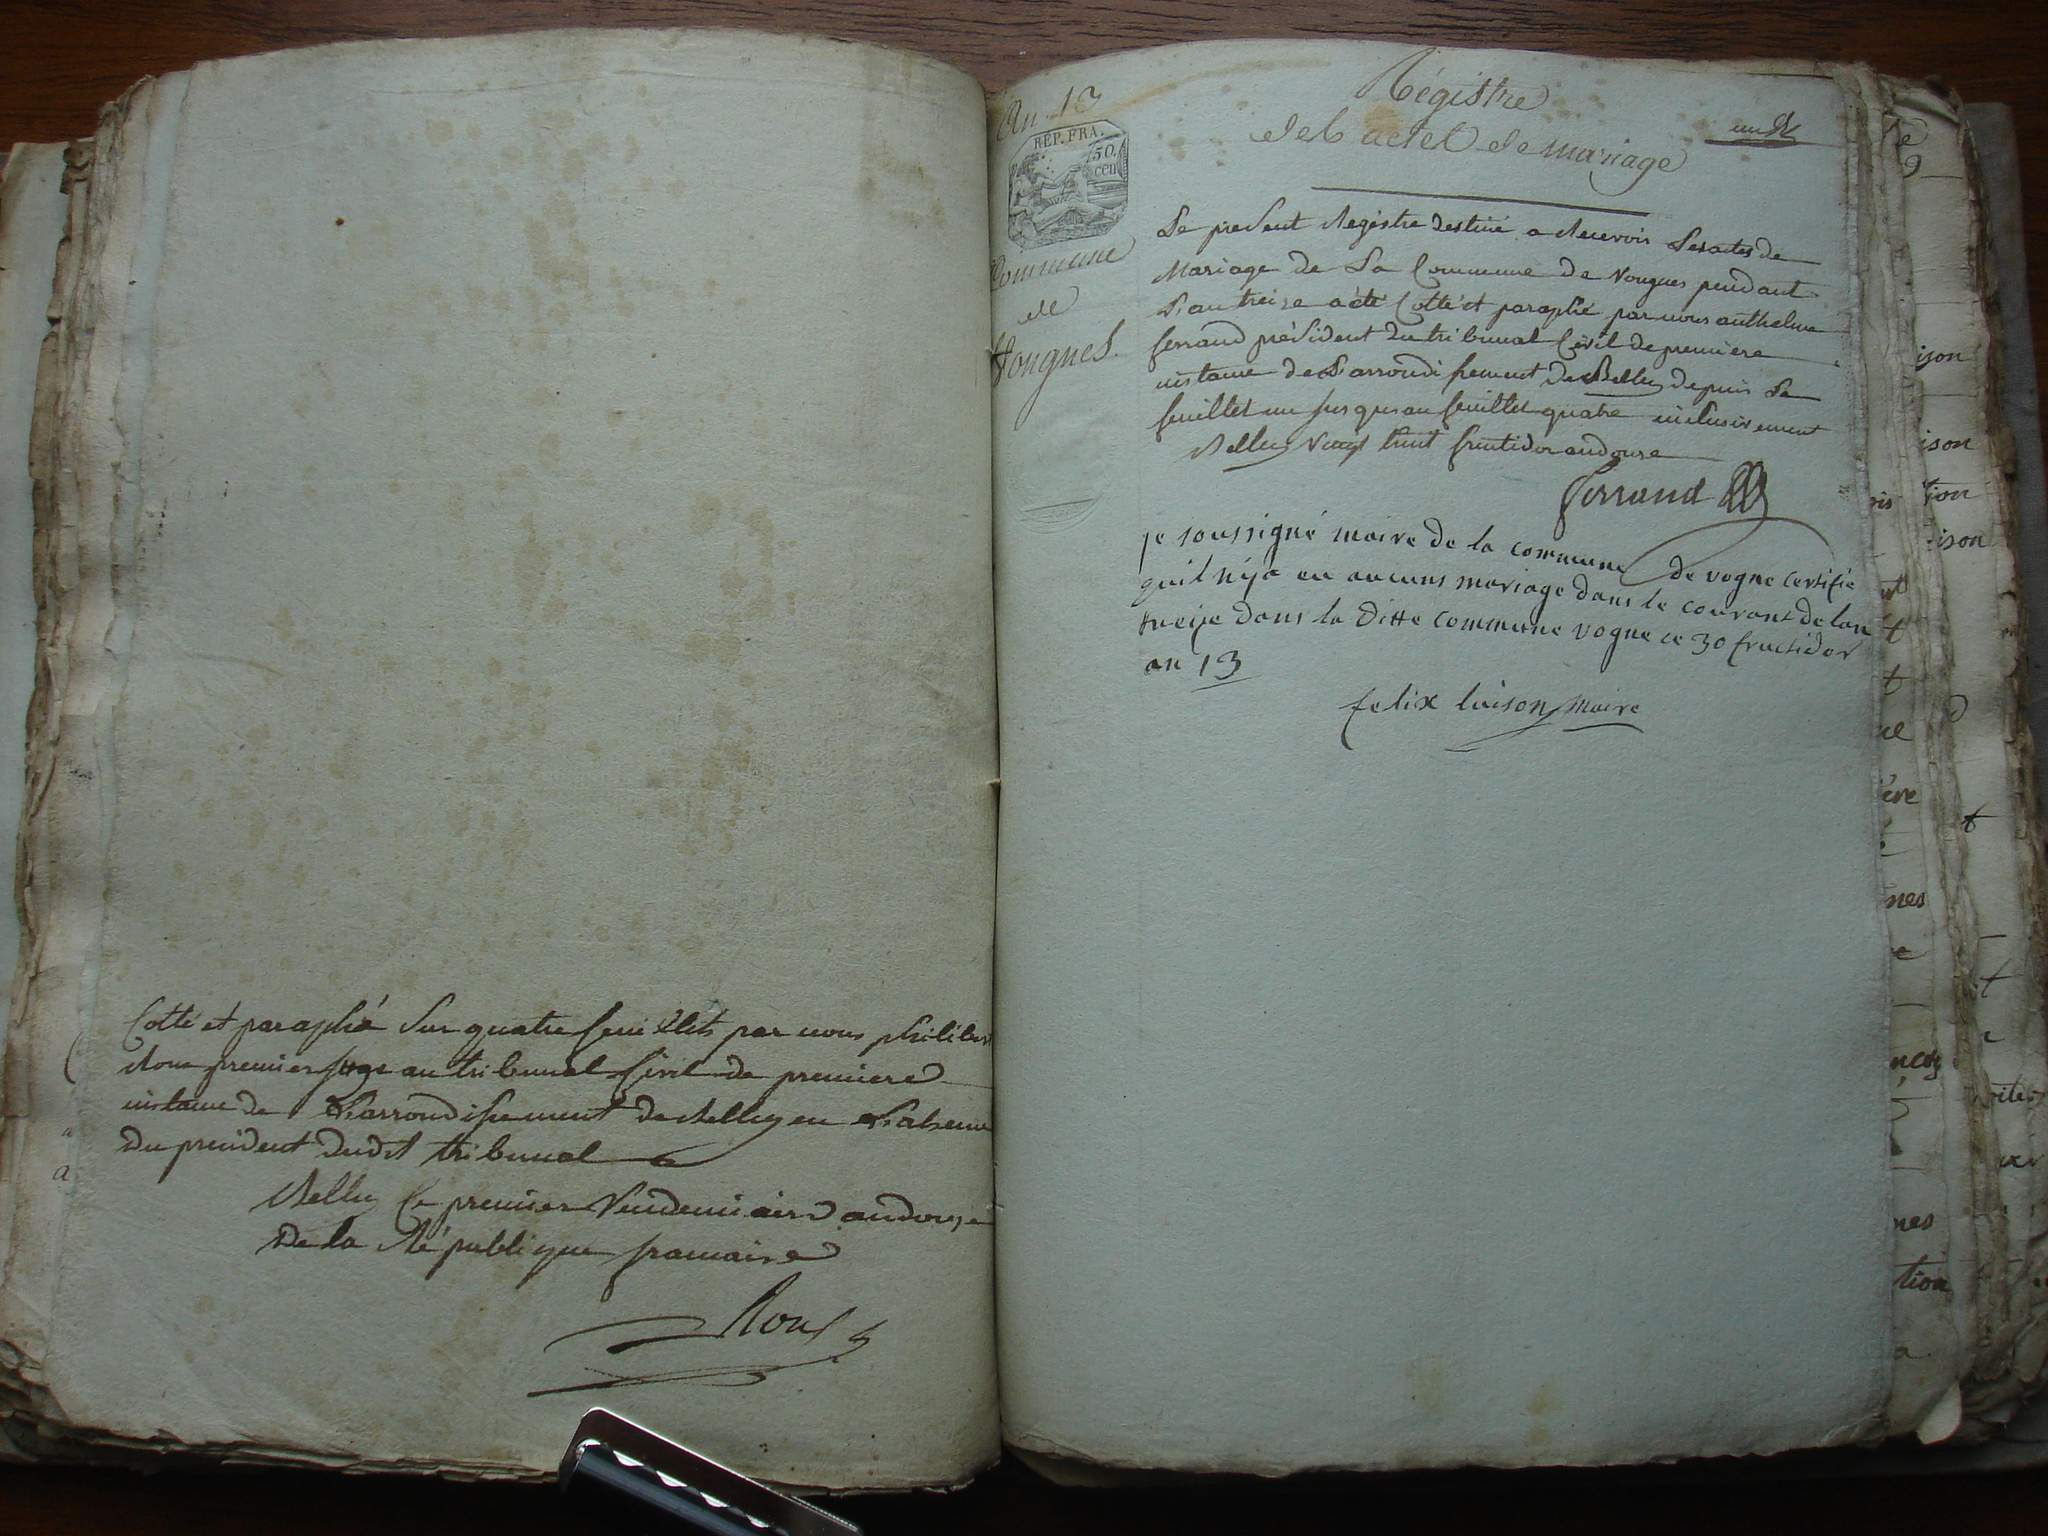 Cotté et paraphé sur quatre feuillets par nous philibert
Roux premier juge au tribunal Civil de premiere
instance de L'arrondissement de Belley en L'absence
Du president dudit tribunal
Belley Le premier Vendemiaire an douze
De la République francaise
Roux
An. 13
REP. FRA.
50.
cen
Commune
de
Vongnes.
Régistre
des actes de mariage
un
Le present Registre destiné a Recevoir Les actes de
Mariage de La Commune de Vongnes pendant
L'an treize a été Cotté et paraphé par nous anthelme
ferrand président du tribunal Civil de premiere
instance de L'arrondissement de Belley depuis Le
feuillet un jusques au feuillet quatre inclusivement
Belley Vingt huit fructidor an douze
ferrand
je soussigné maire de la commune de vogne certifie
quil nya eu aucuns mariage dans le courant de lan
treize dans la ditte commune vogne ce 30 fructidor
an 13
felix luison maire
ison
ison
tion
ison
nes
nes
tion